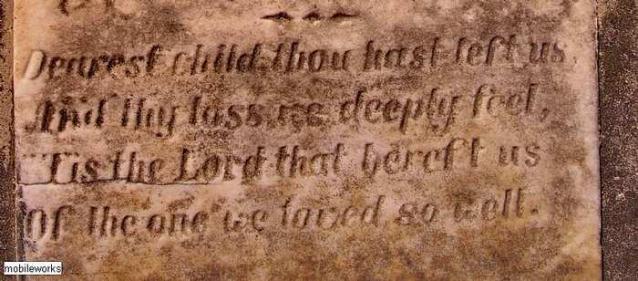 Dearest child thou hast left us,
And thy loss we deeply feel,
'Tis the Lord that bereft us
Of the one we loved so well.
mobileworks